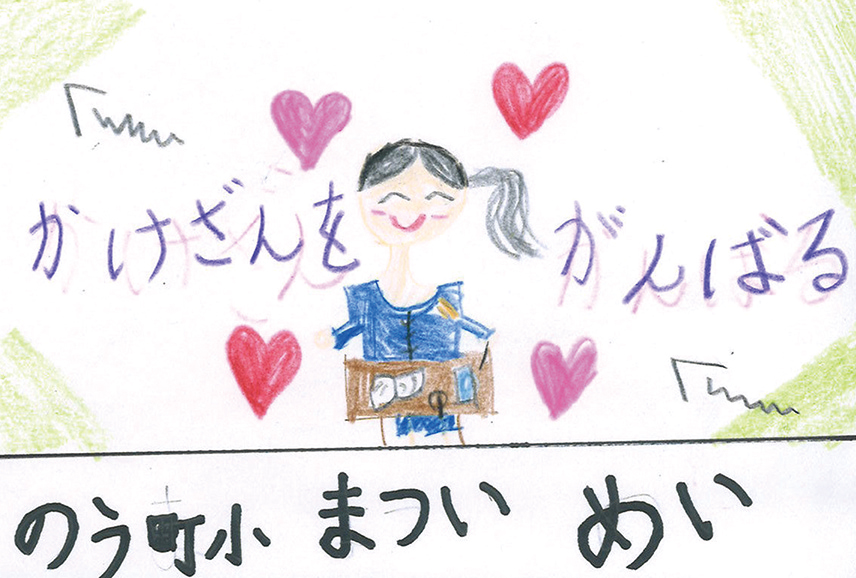 かけざんを がんばる
のう町小 まつい めい